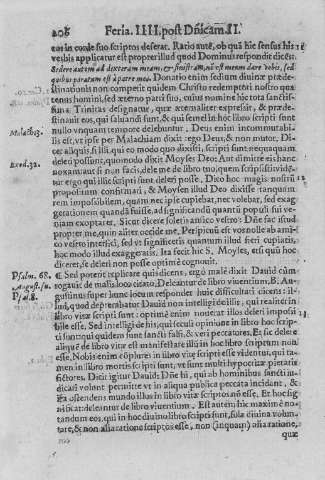 208 Feria. IIII. post Dñicam. II.
eos in corde suo scriptos deserat. Ratio autē, ob quā hic sensus his 12
verbis applicatur est propter illud quod Dominus respondit dicēs:
Sedere autem ad dexteram meam, & sinistram, nō est meum dare vobis, sed
quibus paratum est à patre meo. Donatio enim sedium diuinæ præde-
stinationis non competit quidem Christo redemptori nostro qua
tenus homini, sed æterno patri suo, cuius nomine hic tota sanctissi-
ma Trinitas designatur, quæ æternaliter expressit, & prædesti-
nauit eos, qui saluandi sunt, & qui semel in hoc libro scripti sunt
nullo vnquam tempore delebuntur, Deus enim intommutabi-
Malach. 3. lis est, vt ipse per Malachiam dixit: ego Deus, & non mutor. Di-
cet aliquis, si illi, qui eo modo quo dixisti, scripti sunt nequaquam
Exod. 32. deleri possunt, quomodo dixit Moyses Deo: Aut dimitte eis hanc
noxam, aut si non facis, dele me de libro tuo, quem scripsisti, vide-
tur ergo qui illic scripti sunt deleri posse. Dico hoc magis nostrū 13
propositum confirmari, & Moysen illud Deo dixisse tanquam
rem impossibilem, quam nec ipse cupiebat, nec volebat, sed exag-
gerationem quandā fuisse, ad significandū quantū populi sui ve-
niam exoptaret. Sicut dicere solet amico vestro: Aut fac istud
propter me, quin aliter occide me, Perspicuū est vos nolle ab ami-
co vestro interfici, sed vt significetis quantum illud fieri cupiatis,
hoc modo illud exaggeratis. Ita fecit hic S. Moyses, etsi quū hoc
diceret, se deleri non posse optimè cognouit.
Psalm. 68. ¶ Sed poterit replicare quis dicens, ergo malè dixit Dauid cùm
August. su. rogauit de malis loco citato, Deleantur de libro viuentium, B. Au-
Psal. 8. gustinus super hunc locum respondet huic difficultati citota: il-
los, quos deprecabatur Dauid non intelligi de illis, qui realiter in
libro vitæ scripti sunt: optimè enim nouerat illos deleri impossi
bile esse. Sed intelligi de his, qui seculi opinione in libro hoc scrip-
ti sunt: qui quidem sunt sancti falsi, & veri peccatores. Et sic delere
aliquē de libro vitæ est manifestare illū in hoc libro scriptum non
esse. Nobis enim cōplures in libro vitę scripti esse videntur, qui ta-
men in libro mortis scripti sunt, vt sunt multi hypocritæ pietatis
fictores. Dicit igitur Dauid: Dñe hi, qui ab hominibus sancti iu-
dicari volunt permitte vt in aliqua publica peccata incidant, &
ita ostendens mundo illas in libro vitæ scriptos nō esse. Et hoc sig-
nificat: deleantur de libro viuentium. Est autem hic maximè no-
tandum eos, qui in hoc diuino libro scripti sunt, sola diuina volun-
tate, & non alia ratione scriptos esse, non (inquam) alia ratione,
quæ